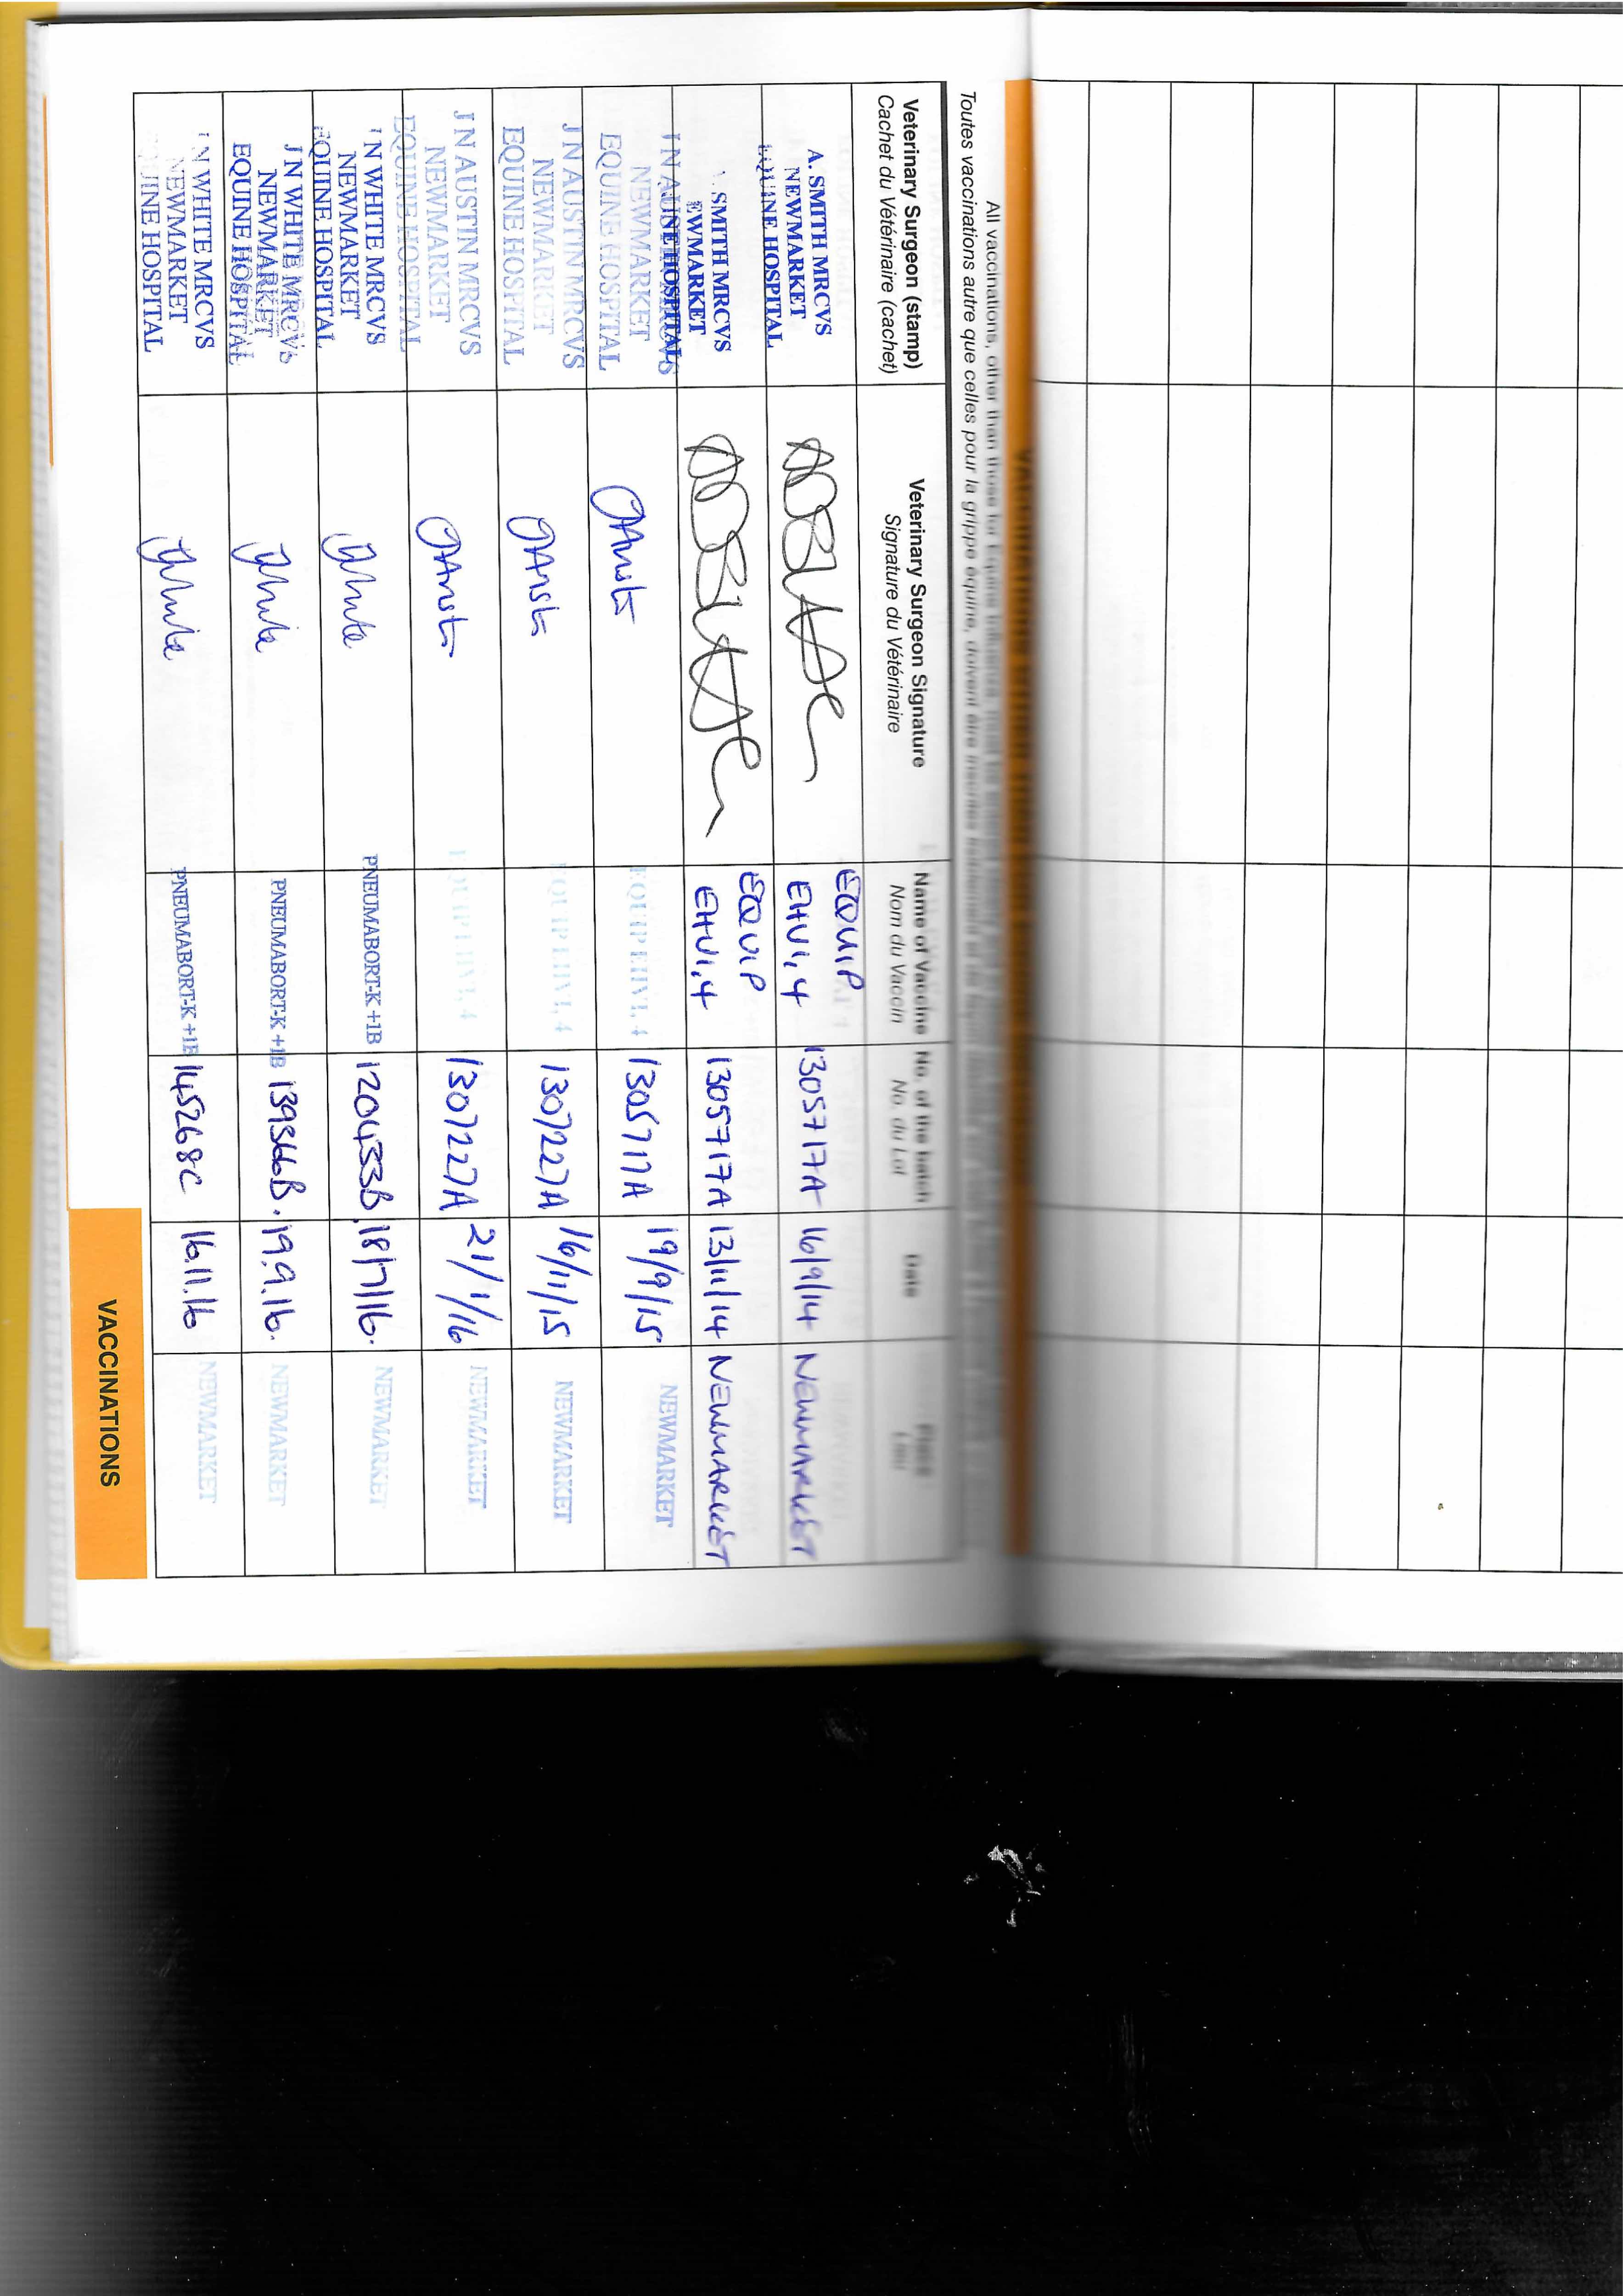 All vaccinations, other than those for equine influenza,
Toutes vaccinations autre que celles pour la grippe équine, doivent être
Veterinary Surgeon (stamp)
Cachet du Vétérinaire (cachet)
Veterinary Surgeon Signature
Signature du Vétérinaire
Name of Vaccine
Nom du Vaccin
No. of the batch
No. du Lot
Date
Place
Lieu
A. SMITH MRCVS
NEWMARKET
EQUINE HOSPITAL
EQUIP
EHV1,4
130571 7A
16/9/14
NEWMARKET
SMITH MRCVS
EWMARKET
UNE HOSPITAL
EQUIP
EHV1,4
1305717A
13/11/14
NEWMARKET
J N AUSTIN MRCVS
NEWMARKET
EQUINE HOSPITAL
EQUIP EHV1, 4
1305717A
19/9/15
NEWMARKET
J N AUSTIN MRCVS
NEWMARKET
EQUINE HOSPITAL
EQUIP EHV1, 4
1307227A
16/11/15
NEWMARKET
J N AUSTIN MRCVS
NEWMARKET
EQUINE HOSPITAL
EQUIP EHV1, 4
1307227A
21/1/16
NEWMARKET
N WHITE MRCVS
NEWMARKET
EQUINE HOSPITAL
PNEUMABORT-K +1B
120433B
18/7/16.
NEWMARKET
J N WHITE MRCVS
NEWMARKET
EQUINE HOSPITAL
PNEUMABORT-K +1B
139366B.
19.9.16.
NEWMARKET
N WHITE MRCVS
NEWMARKET
UINE HOSPITAL
PNEUMABORT-K +1B
145268C
16.11.16
NEWMARKET
VACCINATIONS